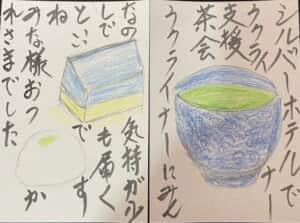 シルバーホテルで
ウクライナー
支援
茶会
ウクライナーにみん
なの気持が少
しでも届く
といいです
ね
みな様おつか
れさまでした